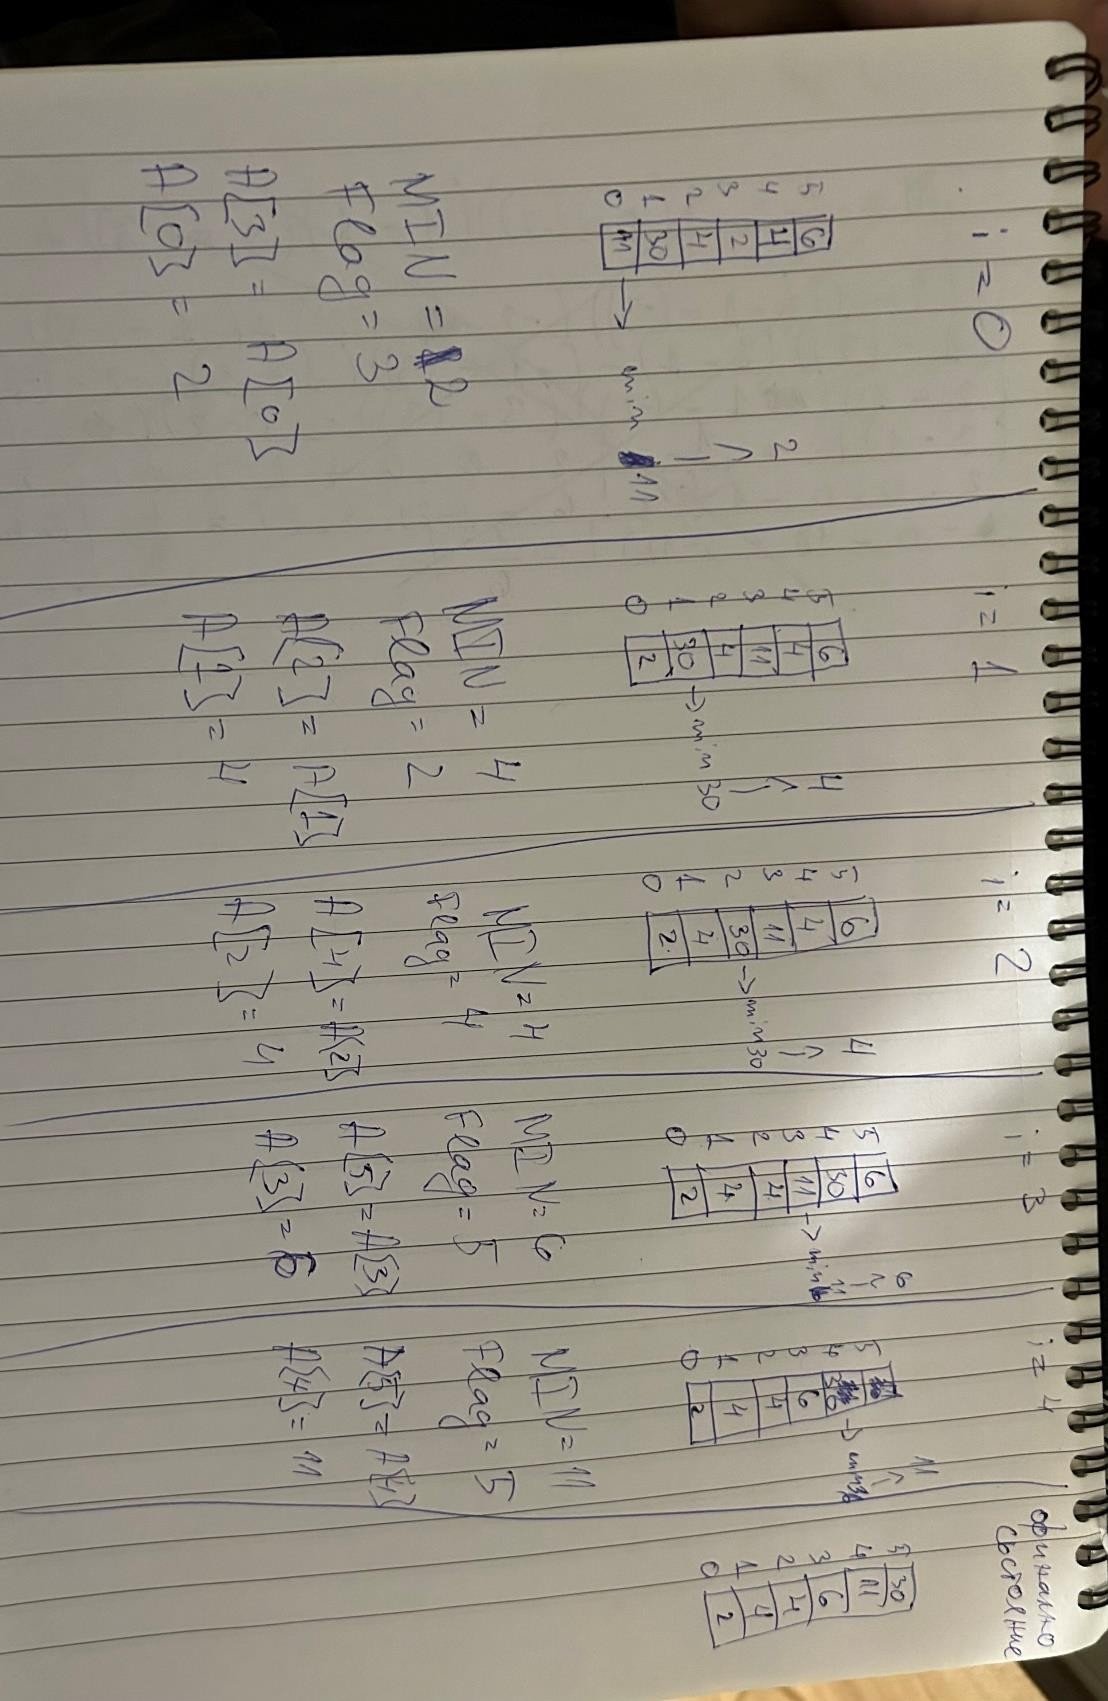 i = 0
5 6
4 4 2
3 2
2 4
1 30
0 11 → min 11
MIN = 2
Flag = 3
A[3] = A[0]
A[0] = 2
i = 1
5 6
4 4 4
3 11
2 4
1 30 → min 30
0 2
MIN = 4
Flag = 2
A[2] = A[1]
A[1] = 4
i = 2
5 6 4
4 4
3 11
2 30 → min 30
1 4
0 2
MIN = 4
Flag = 4
A[4] = A[2]
A[2] = 4
i = 3
5 6 6
4 30
3 11 → min 11
2 4
1 4
0 2
MIN = 6
Flag = 5
A[5] = A[3]
A[3] = 6
i = 4
11
5
4 30 → min 30
3 6
2 4
1 4
0 2
MIN = 11
Flag = 5
A[5] = A[4]
A[4] = 11
финално
състояние
5 30
4 11
3 6
2 4
1 4
0 2